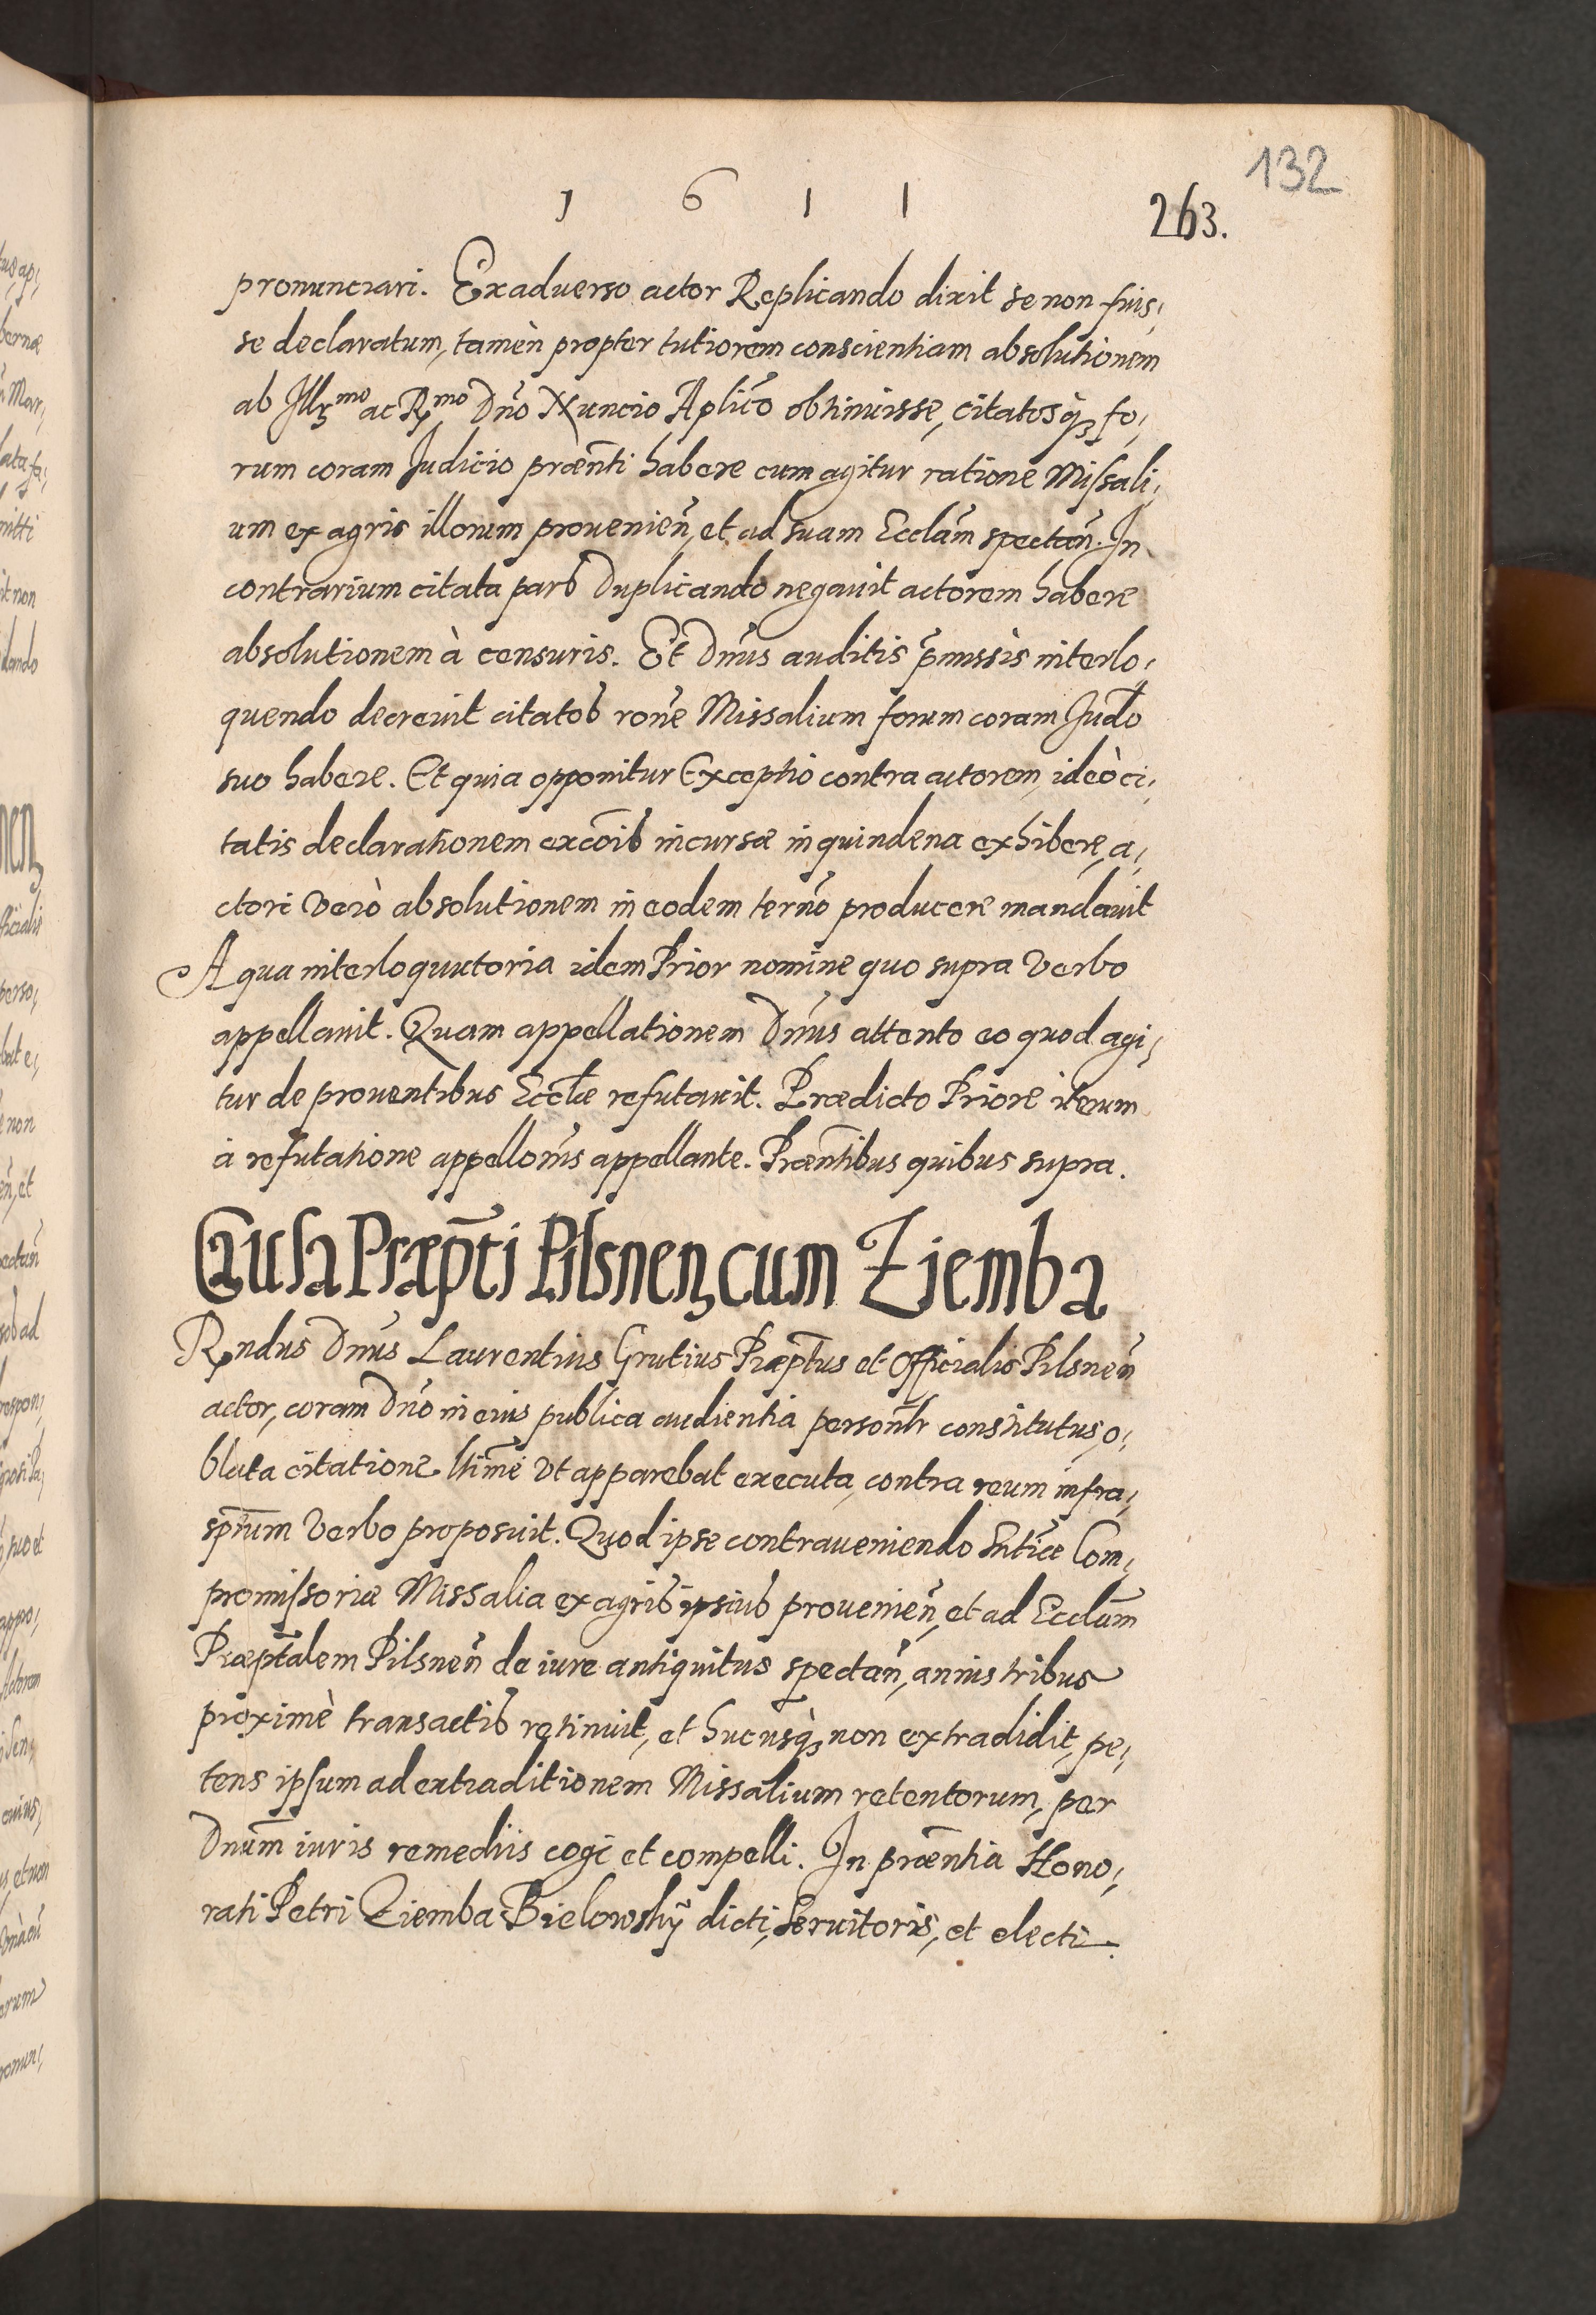 132
1 6 1 1
263.
pronunciari. Exaduerso actor Replicando dixit se non fuis,
se declaratum, tamèn propter tutiorem conscientiam absolutionem
ab Illr̃mo ac Rmo Dño Nuncio Aplico obtinuisse, citatosq̃ fo,
rum coram Judicio præñti habere cum agitur ratione Missali,
um ex agris illorum prouenieñ, et ad suam Ecclãm spectañ. In
contrarium citata pars Duplicando negauit actorem habere
absolutionem à censuris. Et Dñus auditis p̃missis interlo,
quendo decreuit citatos roñe Missalium forum coram Judo
suo habere. Et quia opponitur Exceptio contra actorem, ideò ci,
tatis declarationem excõis incursæ in quindena exhibere, a,
ctori Verò absolutionem in eodem terño producere mandauit
A qua interloquutoria idem Prior nomine quo supra Verbo
appellauit. Quam appellationem Dñus attento eo quod agi,
tur de prouentibus Eccłæ refutauit. Prædicto Priore iterum
à refutatione appelloñis appellante. Præñtibus quibus supra.
Causa Præp̃ti Pilsnen̨ cum Ziemba
Rndus Dñus Laurentius Grutius Præptus et Officialis Pilsneñ
actor, coram Dño in eius publica audientia persoñlr constitutus, o,
blata citatione ltimẽ Vt apparebat executa, contra reum infra,
sp̃tum Verbo proposuit. Quod ipse contraueniendo Sñtiæ Com,
promissoriæ Missalia ex agris ipsius prouenieñ, et ad Ecclãm
Præptalem Pilsneñ de iure antiquitus spectañ, annis tribus
proximè transactis retinuit, et hucusq̃ non extradidit, pe,
tens ipsum ad extraditionem Missalium retentorum, per
Dnum̃ iuris remediis cogi et compelli. In præñtia Hono,
rati Petri Ziemba Bielowsky dicti, Seruitoris, et electi